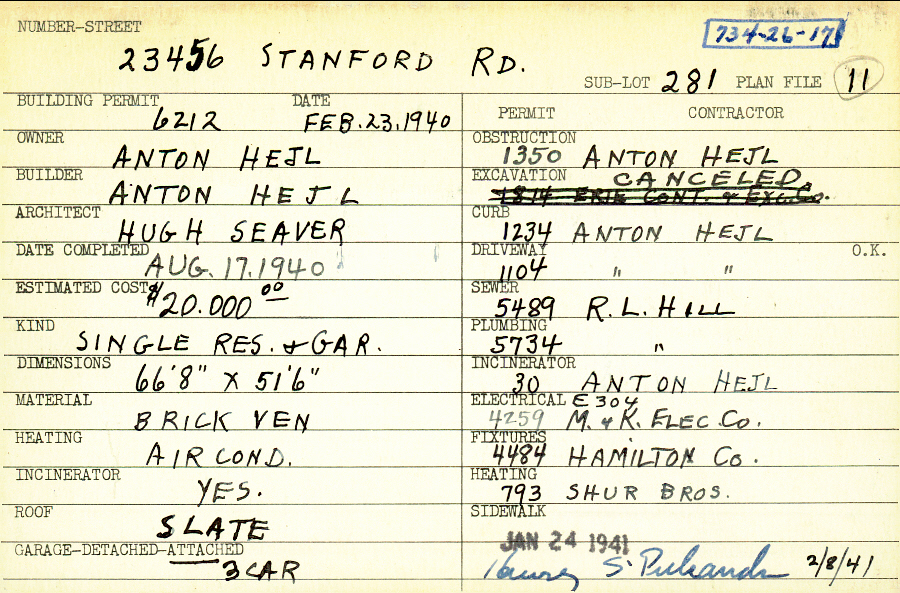 NUMBER-STREET
734-26-17
23456 STANFORD RD.
SUB-LOT 281 PLAN FILE 11
BUILDING PERMIT DATE
6212 FEB.23.1940
OWNER
ANTON HEJL
BUILDER
ANTON HEJL
ARCHITECT
HUGH SEAVER
DATE COMPLETED
AUG. 17.1940
ESTIMATED COST
$20.000 00
KIND
SINGLE RES. & GAR.
DIMENSIONS
66'8" X 51'6"
MATERIAL
BRICK VEN
HEATING
AIR COND.
INCINERATOR
YES.
ROOF
SLATE
GARAGE-DETACHED-ATTACHED
3 CAR
PERMIT CONTRACTOR
OBSTRUCTION
1350 ANTON HEJL
EXCAVATION CANCELED
1814 ERIE CONT. & EXC. Co.
CURB
1234 ANTON HEJL
DRIVEWAY O.K.
1104 " "
SEWER
5489 R.L. HILL
PLUMBING
5734 "
INCINERATOR
30 ANTON HEJL
ELECTRICAL E304
4259 M. & K. ELEC Co.
FIXTURES
4484 HAMILTON Co.
HEATING
793 SHUR BROS.
SIDEWALK
JAN 24 1941
2/8/41